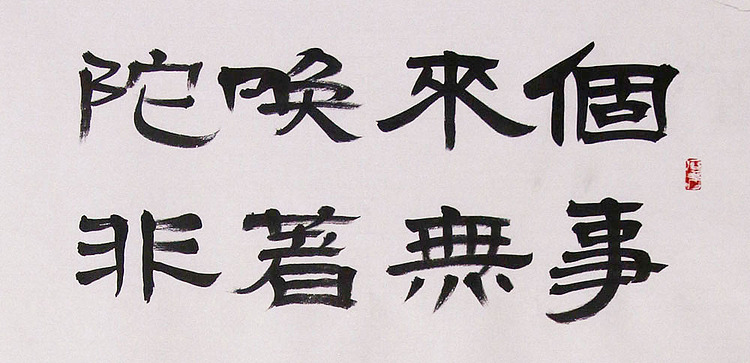 個事
來無
喚著
陀非